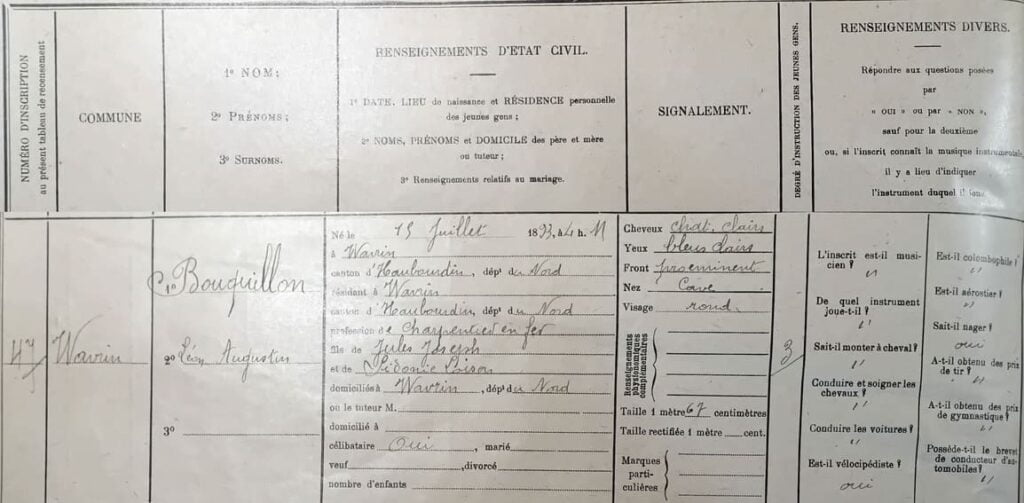 NUMÉRO D'INSCRIPTION
au présent tableau de recensement
COMMUNE
1º NOM;
2º PRÉNOMS;
3º SURNOMS.
RENSEIGNEMENTS D'ETAT CIVIL.
1º DATE, LIEU de naissance et RÉSIDENCE personnelle
des jeunes gens;
2º NOMS, PRÉNOMS et DOMICILE des père et mère
ou tuteur;
3º Renseignements relatifs au mariage.
SIGNALEMENT.
DEGRÉ D'INSTRUCTION DES JEUNES GENS.
RENSEIGNEMENTS DIVERS.
Répondre aux questions posées
par
« OUI » ou par « NON »,
sauf pour la deuxième
ou, si l'inscrit connaît la musique instrumentale
il y a lieu d'indiquer
l'instrument duquel il joue.
47
Wavrin
1º Bouquillon
2º Léon Augustin
3º
Né le 15 Juillet 1893, à 4 h. M
à Wavrin
canton d'Haubourdin, dépt du Nord
résidant à Wavrin
canton d'Haubourdin, dépt du Nord
profession de Charpentier en fer
fils de Jules Joseph
et de Sidonie Loison
domiciliés à Wavrin, dépt du Nord
ou le tuteur M.
domicilié à
célibataire Oui, marié
veuf, divorcé
nombre d'enfants
Cheveux chat. clairs
Yeux bleus clairs
Front proeminent
Nez Cave
Visage rond.
Renseignements
physionomiques
complémentaires
Taille 1 mètre 67 centimètres
Taille rectifiée 1 mètre cent.
Marques
parti-
culières
3
L'inscrit est-il musi-
cien ?
"
De quel instrument
joue-t-il ?
"
Sait-il monter à cheval ?
"
Conduire et soigner les
chevaux ?
"
Conduire les voitures ?
"
Est-il vélocipédiste ?
oui
Est-il colombophile ?
"
Est-il aérostier ?
"
Sait-il nager ?
oui
A-t-il obtenu des prix
de tir ?
"
A-t-il obtenu des prix
de gymnastique ?
"
Possède-t-il le brevet
de conducteur d'au-
tomobiles ?
"